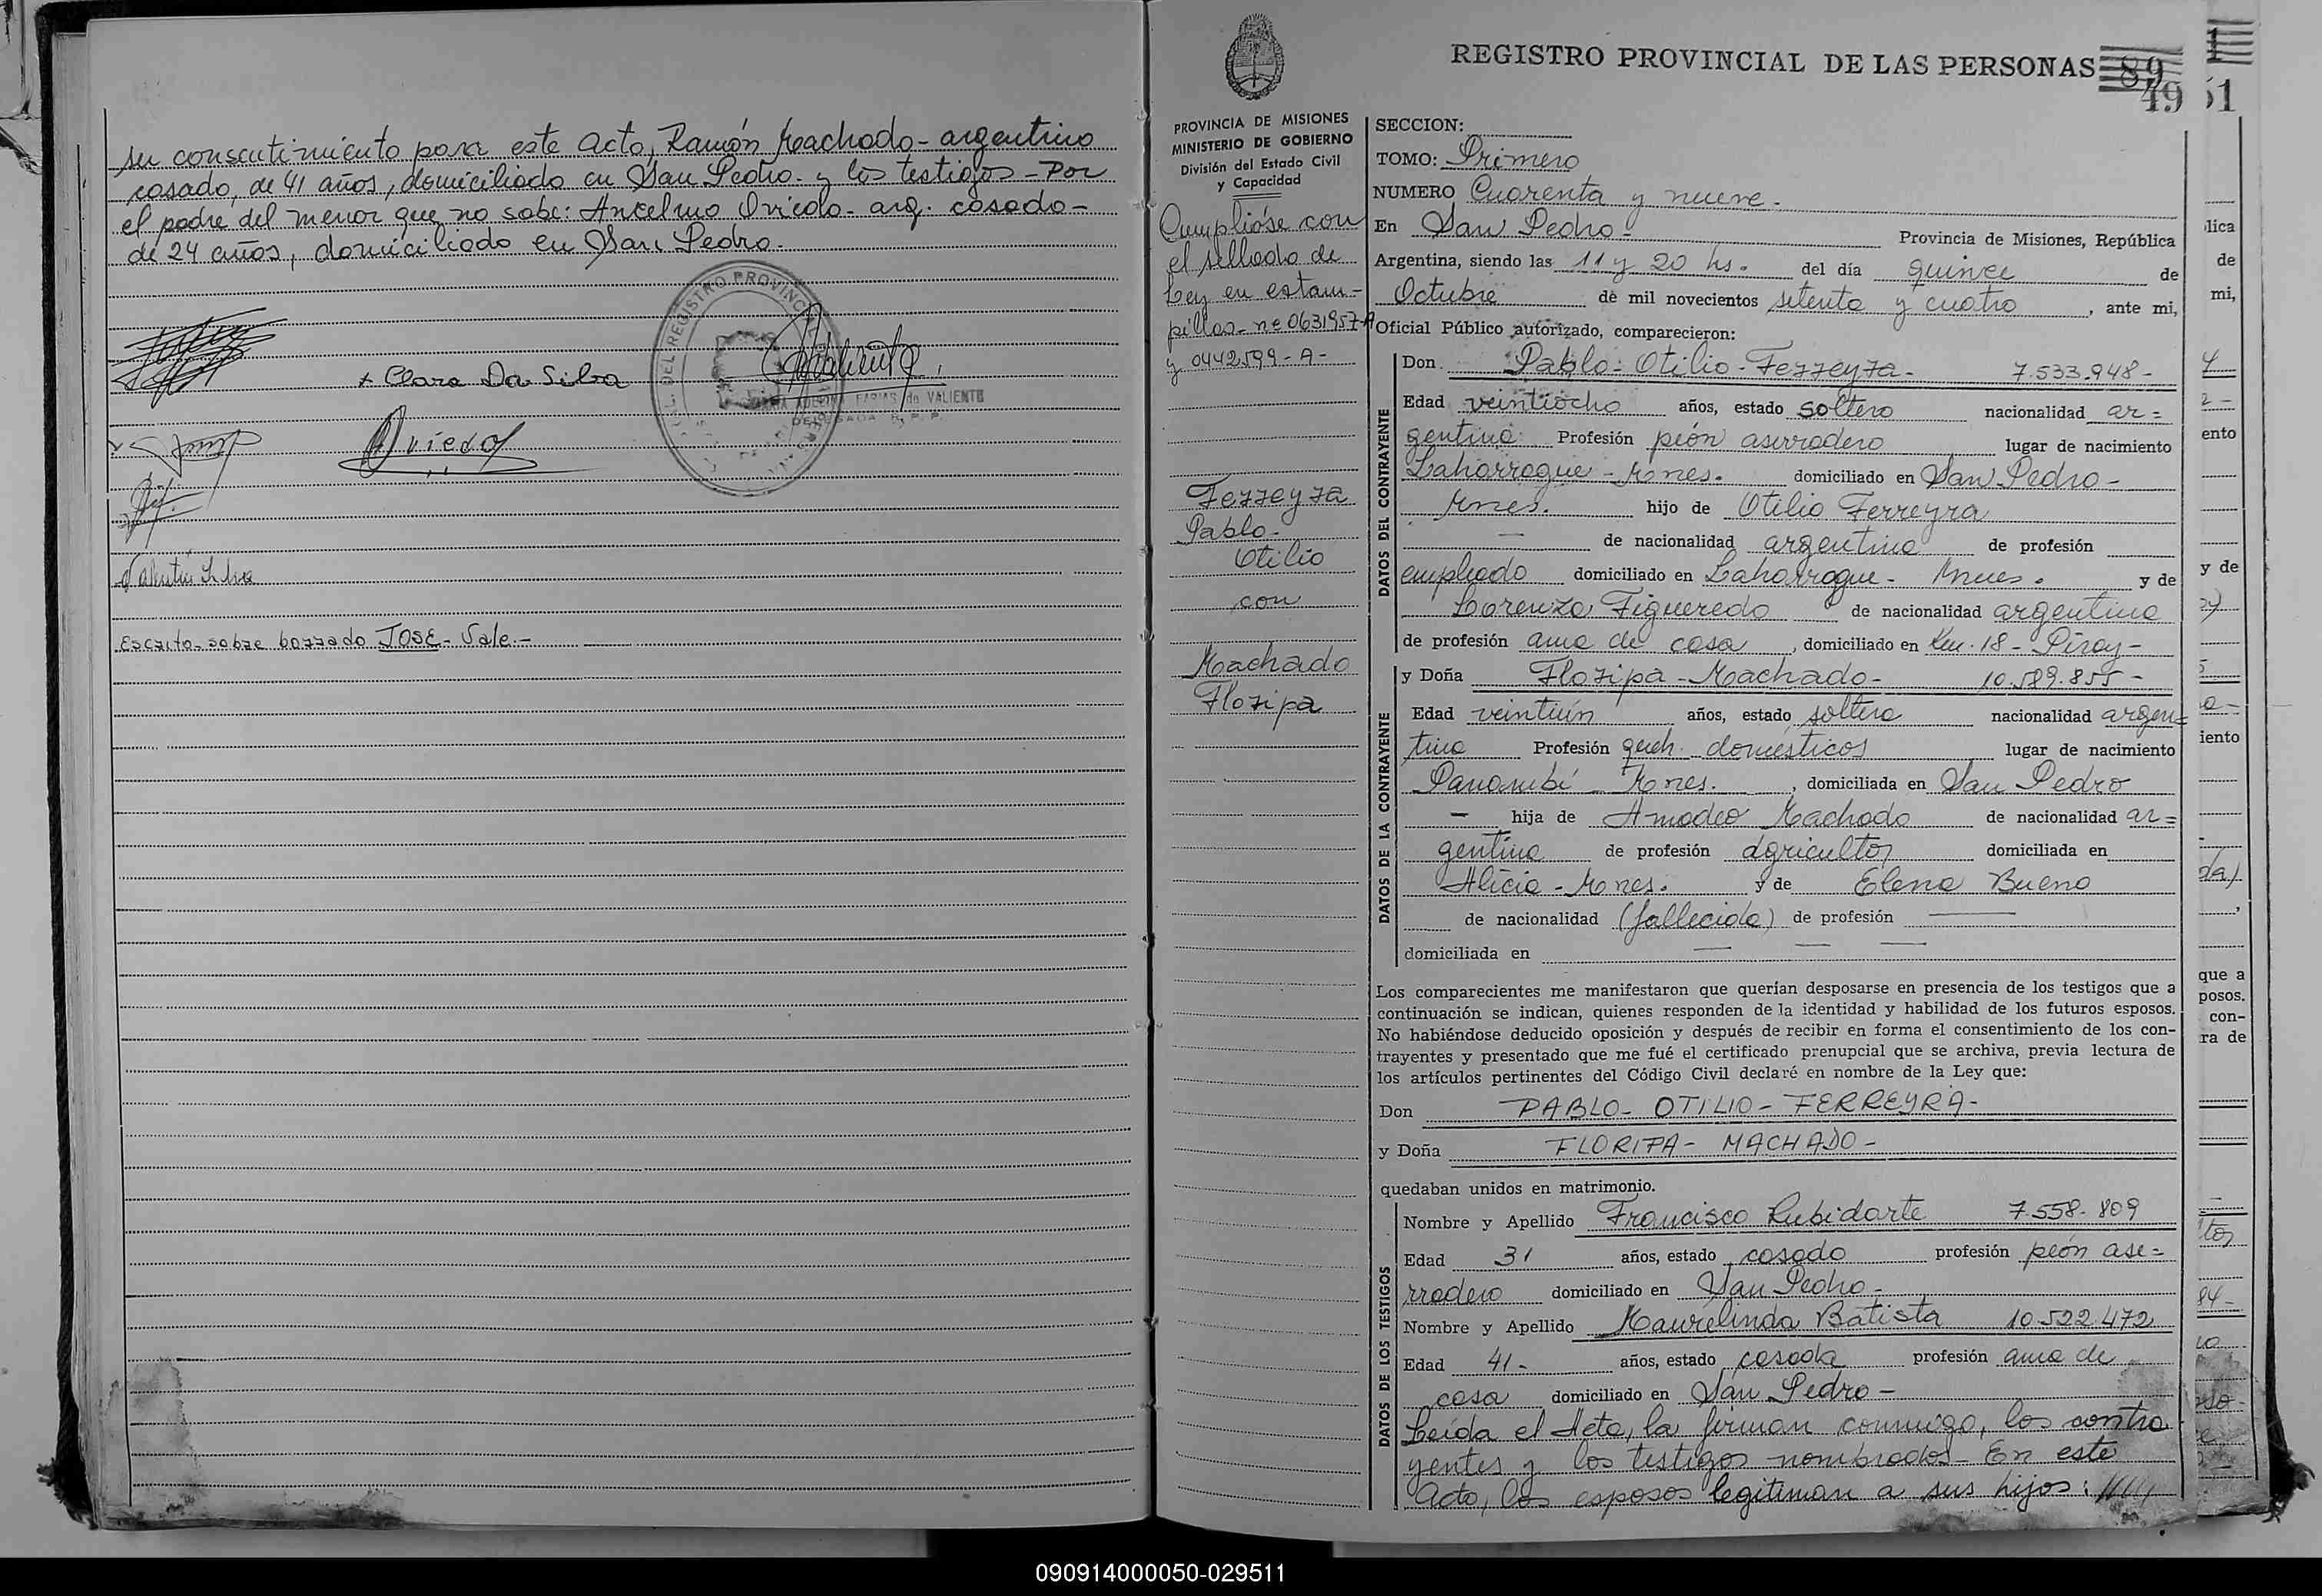 su consentimiento para este acto, Ramón Machado - argentino
casado, de 41 años, domiciliado en San Pedro - y los testigos - Por
el padre del menor que no sabe: Antelmo Oviedo - arg. casado -
de 24 años, domiciliado en San Pedro.
x Clara Da Silva
DEL REGISTRO PROVINC
FARIAS de VALIENTE
DELEGADA R. P. P.
Oviedo
Valentín Silva
Escrito sobre borrado JOSE - Vale. -
REGISTRO PROVINCIAL DE LAS PERSONAS 89
49
51
PROVINCIA DE MISIONES
MINISTERIO DE GOBIERNO
División del Estado Civil
y Capacidad
Cumplióse con
el sellado de
Ley en estam-
pillas - nº 0631957-A
y 0442599 - A -
Ferreyra
Pablo -
Otilio
con
Machado
Floripa
SECCION:
TOMO: Primero
NUMERO Cuarenta y nueve -
En San Pedro - Provincia de Misiones, República
Argentina, siendo las 11 y 20 hs. del día quince de
Octubre de mil novecientos setenta y cuatro, ante mi,
Oficial Público autorizado, comparecieron:
DATOS DEL CONTRAYENTE
Don Pablo - Otilio - Ferreyra - 7.533.948 -
Edad veintiocho años, estado soltero nacionalidad ar=
gentina Profesión peón aserradero lugar de nacimiento
Laharrague - Mnes. domiciliado en San Pedro -
Mnes. hijo de Otilio Ferreyra
— de nacionalidad argentina de profesión
empleado domiciliado en Laharrague - Mnes. y de
Lorenza Figueredo de nacionalidad argentina
de profesión ama de casa, domiciliado en Km. 18 - Piray -
DATOS DE LA CONTRAYENTE
y Doña Floripa - Machado - 10.589.855 -
Edad veintiún años, estado soltera nacionalidad argen=
tina Profesión queh. domésticos lugar de nacimiento
Panambí - Mnes. , domiciliada en San Pedro
— hija de Amadeo Machado de nacionalidad ar=
gentina de profesión agricultor domiciliada en
Alicia - Mnes. y de Elena Bueno
de nacionalidad (fallecida) de profesión ——
domiciliada en — — —
Los comparecientes me manifestaron que querían desposarse en presencia de los testigos que a
continuación se indican, quienes responden de la identidad y habilidad de los futuros esposos.
No habiéndose deducido oposición y después de recibir en forma el consentimiento de los con-
trayentes y presentado que me fué el certificado prenupcial que se archiva, previa lectura de
los artículos pertinentes del Código Civil declaré en nombre de la Ley que:
Don PABLO - OTILIO - FERREYRA -
y Doña FLORIPA - MACHADO -
quedaban unidos en matrimonio.
DATOS DE LOS TESTIGOS
Nombre y Apellido Francisco Rubidarte 7.558.809
Edad 31 años, estado casado profesión peón ase=
rradero domiciliado en San Pedro -
Nombre y Apellido Maurelinda Batista 10.522.472
Edad 41 - años, estado casada profesión ama de
casa domiciliado en San Pedro -
Leída el Acta, la firman conmigo, los contra
yentes y los testigos nombrados - En este
Acto, los esposos legitiman a sus hijos:
lica
de
mi,
ento
y de
iento
que a
posos.
con-
ra de
090914000050-029511